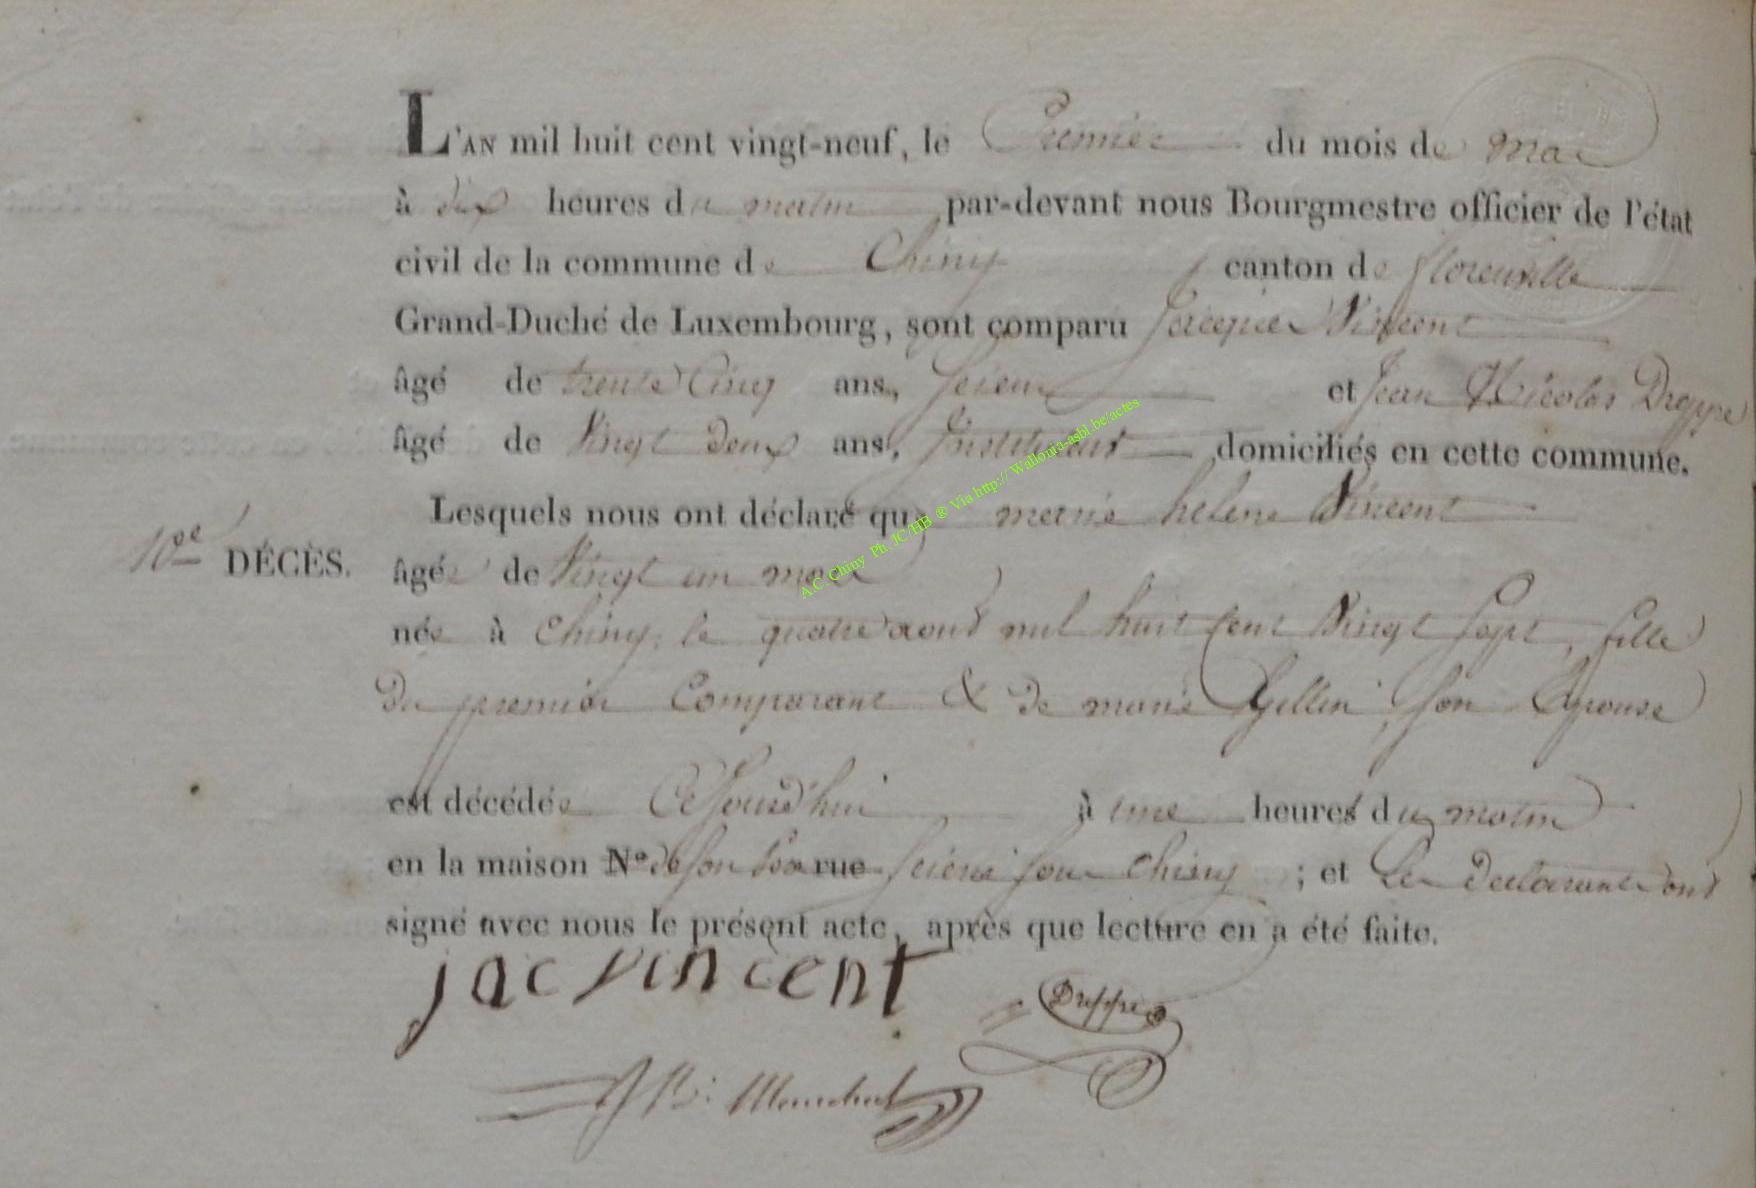 L'AN mil huit cent vingt-neuf, le Premier du mois de mai
à dix heures du matin par-devant nous Bourgmestre officier de l'état
civil de la commune de Chiny canton de florenville
Grand-Duché de Luxembourg, sont comparu Jacques Vincent
âgé de trente Cinq ans, scieur et Jean Nicolas Dreppe
âgé de Vingt deux ans, Instituteur domiciliés en cette commune.
Lesquels nous ont déclaré que marie helene Vincent
10e DÉCÈS. âgée de Vingt un mois
née à Chiny, le quatre aout mil huit Cent Vingt Sept, fille
du premier Comparant & de marie Gillin, Son Epouse
est décédée Cejourd'hui à une heures du matin
en la maison N° de son père rue scierie sous Chiny ; et Les declarants ont
signé avec nous le présent acte, après que lecture en a été faite.
jac vincent
Dreppe
JB:
A.C Chiny Ph. JC/HB ® Via http://Wallonia-asbl.be/actes